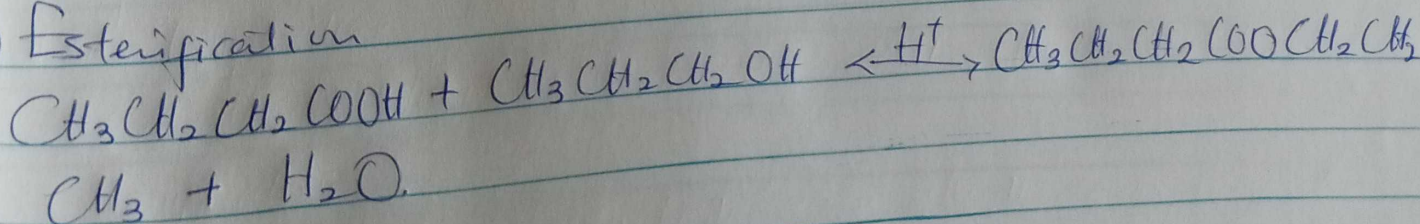 Esterification
CH₃CH₂CH₂COOH + CH₃CH₂CH₂OH ⇌ H⁺ CH₃CH₂CH₂COOCH₂CH₂
CH₃ + H₂O.